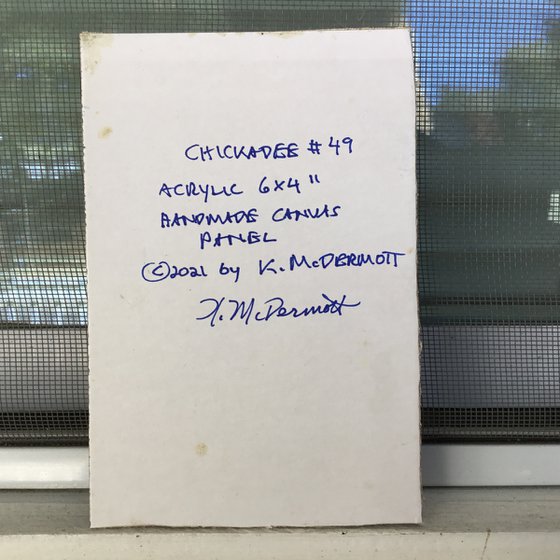 CHICKADEE #49
ACRYLIC 6x4"
HANDMADE CANVAS
PANEL
©2021 by K. McDERMOTT
K. McDermott